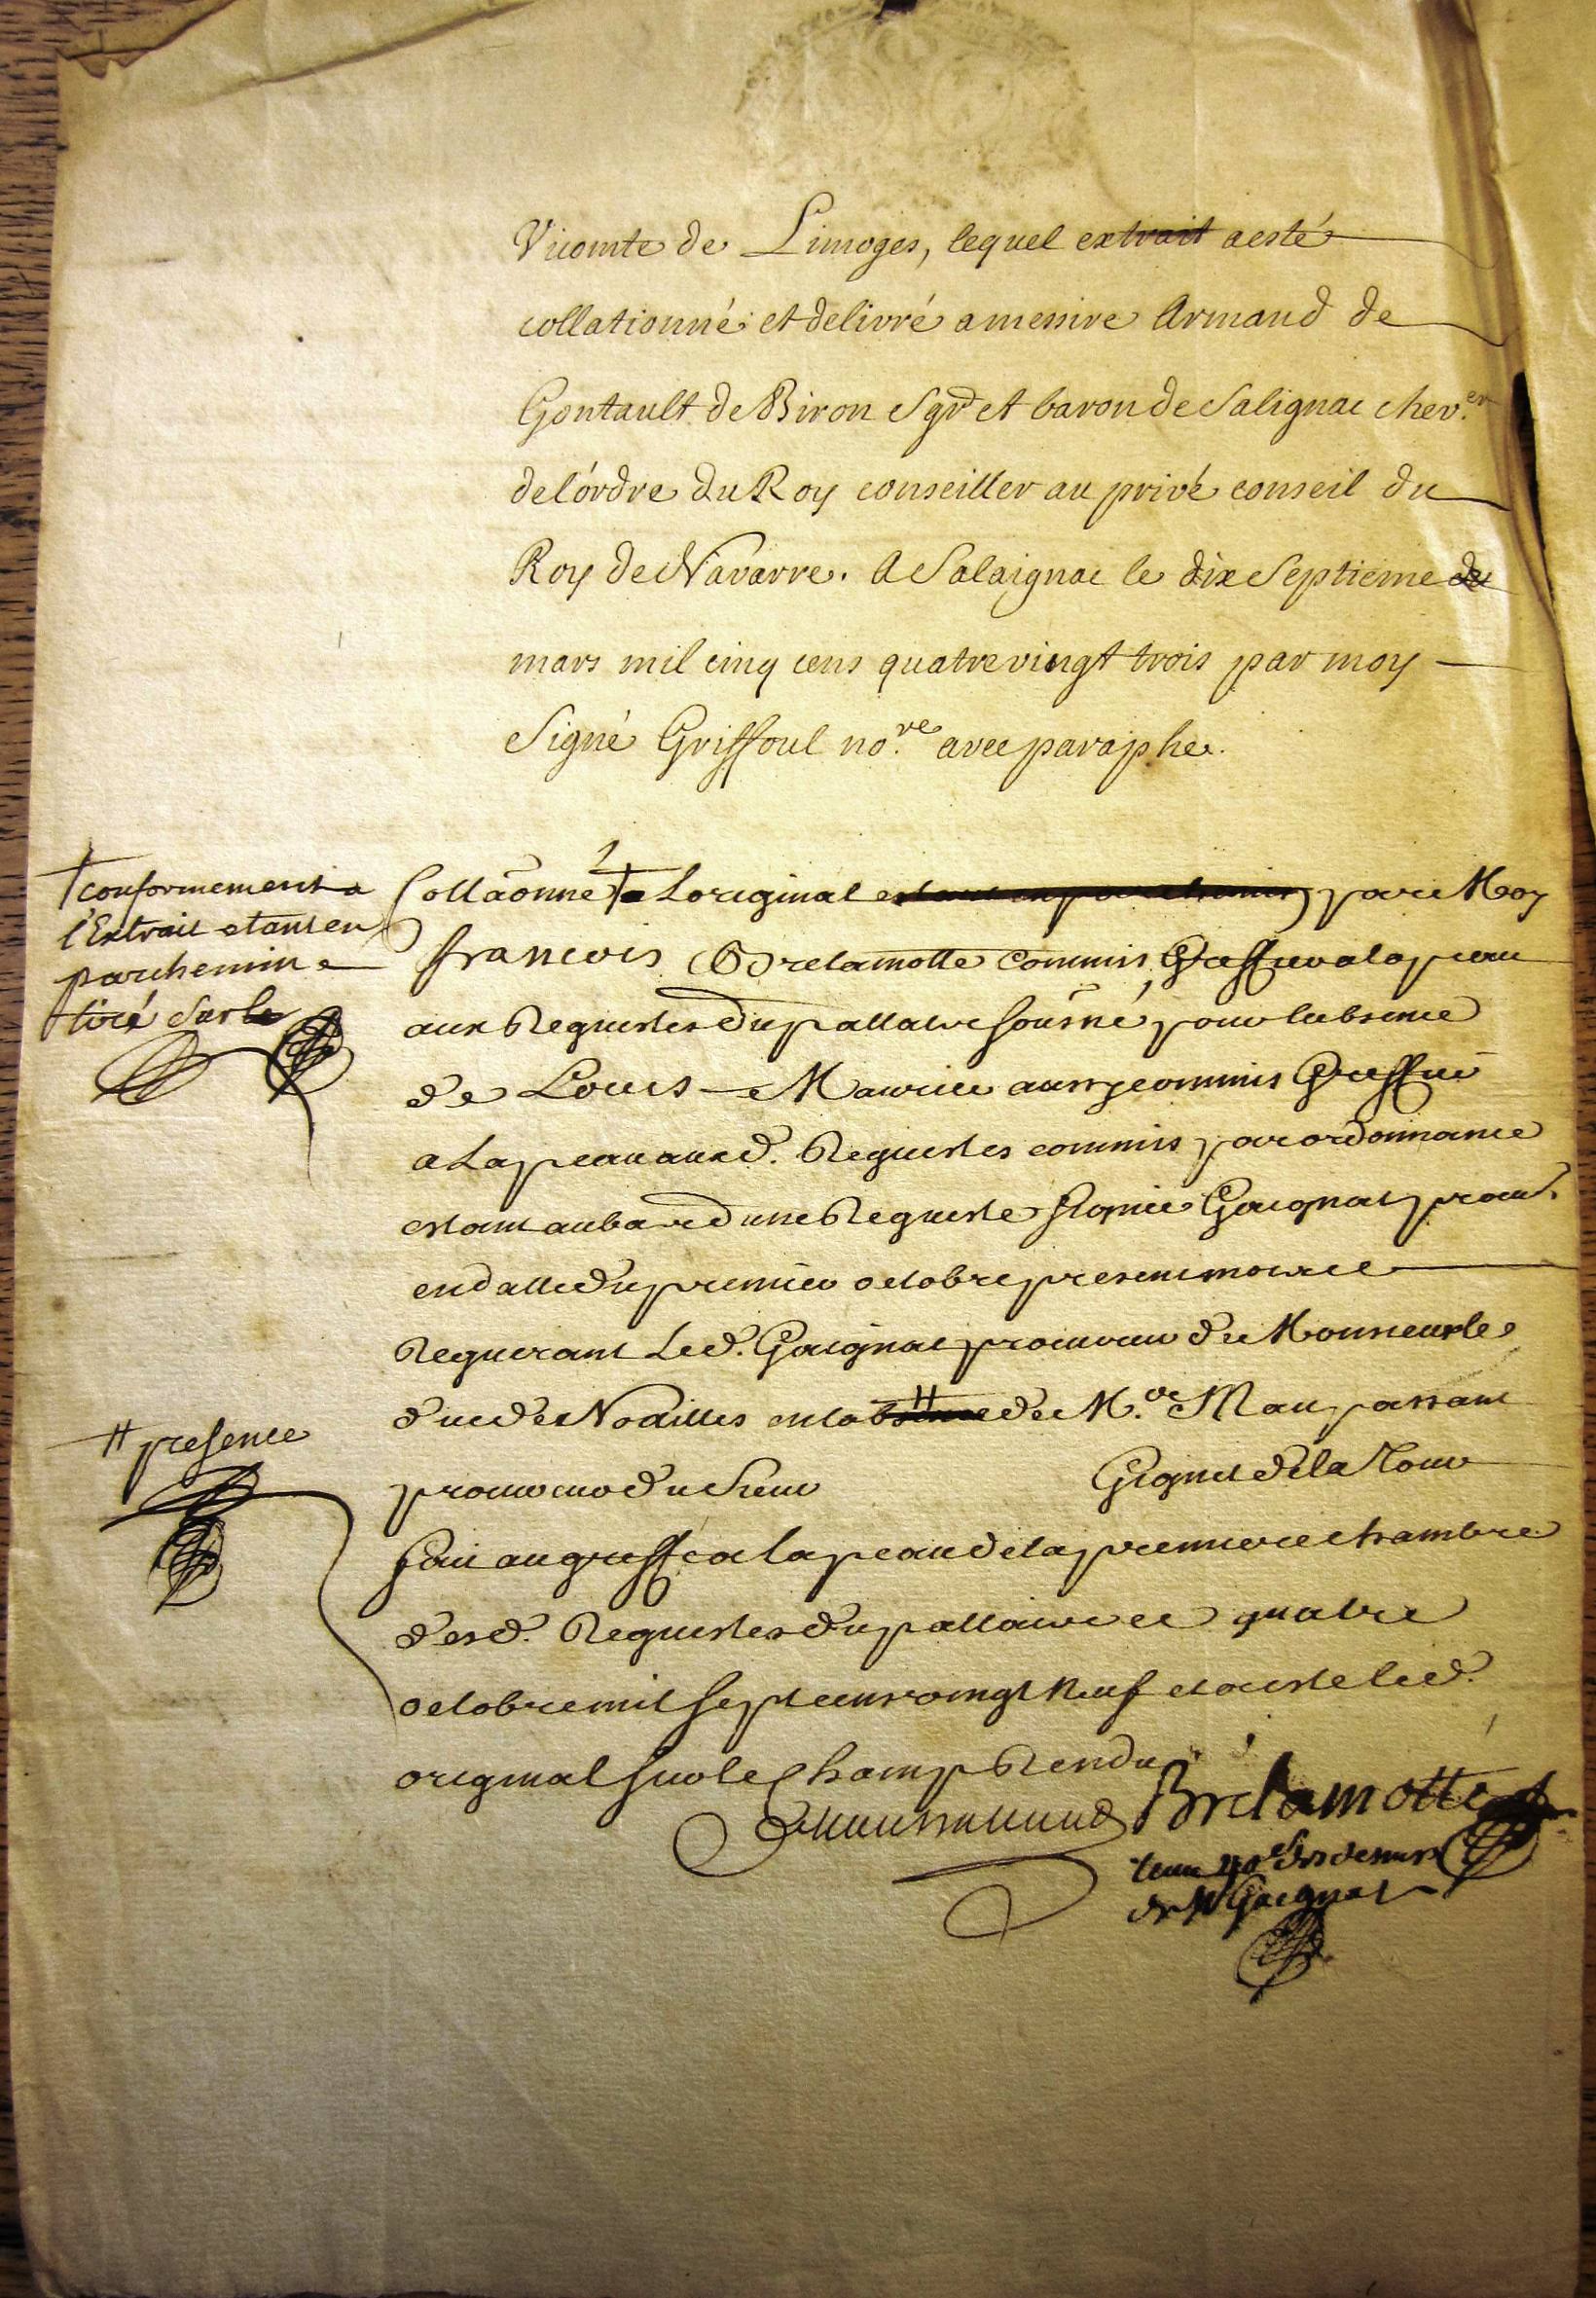 Vicomte de Limoges, lequel extrait a esté
collationné et delivré a messire Armand de
Gontault de Biron Sgr et baron de Salignac chev.er
de l'ordre du Roy conseiller au privé conseil du
Roy de Navarre. A Salaignac le dix septieme de
mars mil cinq cens quatre vingt trois par moy
Signé Griffoul no.re avec paraphe.
† conformement a
l'Extrait etant en
parchemin
tiré sur le
Collaonné † a Loriginal estant en parchemin par Moy
francois Brelamotte Commis Greffier a la peau
aux Requestes du pallais sousné pour labsence
de Louis Maurice aussy commis Greffier
a La peau aux d. Requestes commis par ordonnance
estant au bas d une Requeste signée Gaignat procur.
en datte du premier octobre present mois
Requerant Led. Gaignat procureur de Monsieur le
duc de Noailles en labsence de M.re Maupassant
# presence
procureur du Sieur Gignet de la Tour
fait au greffe a la peau de la premiere chambre
desd. Requestes du pallais ce quatre
octobre mil sept cens vingt neuf et a esté led.
original sur le champ Rendu
Brelamotte
de Mr Gaignat